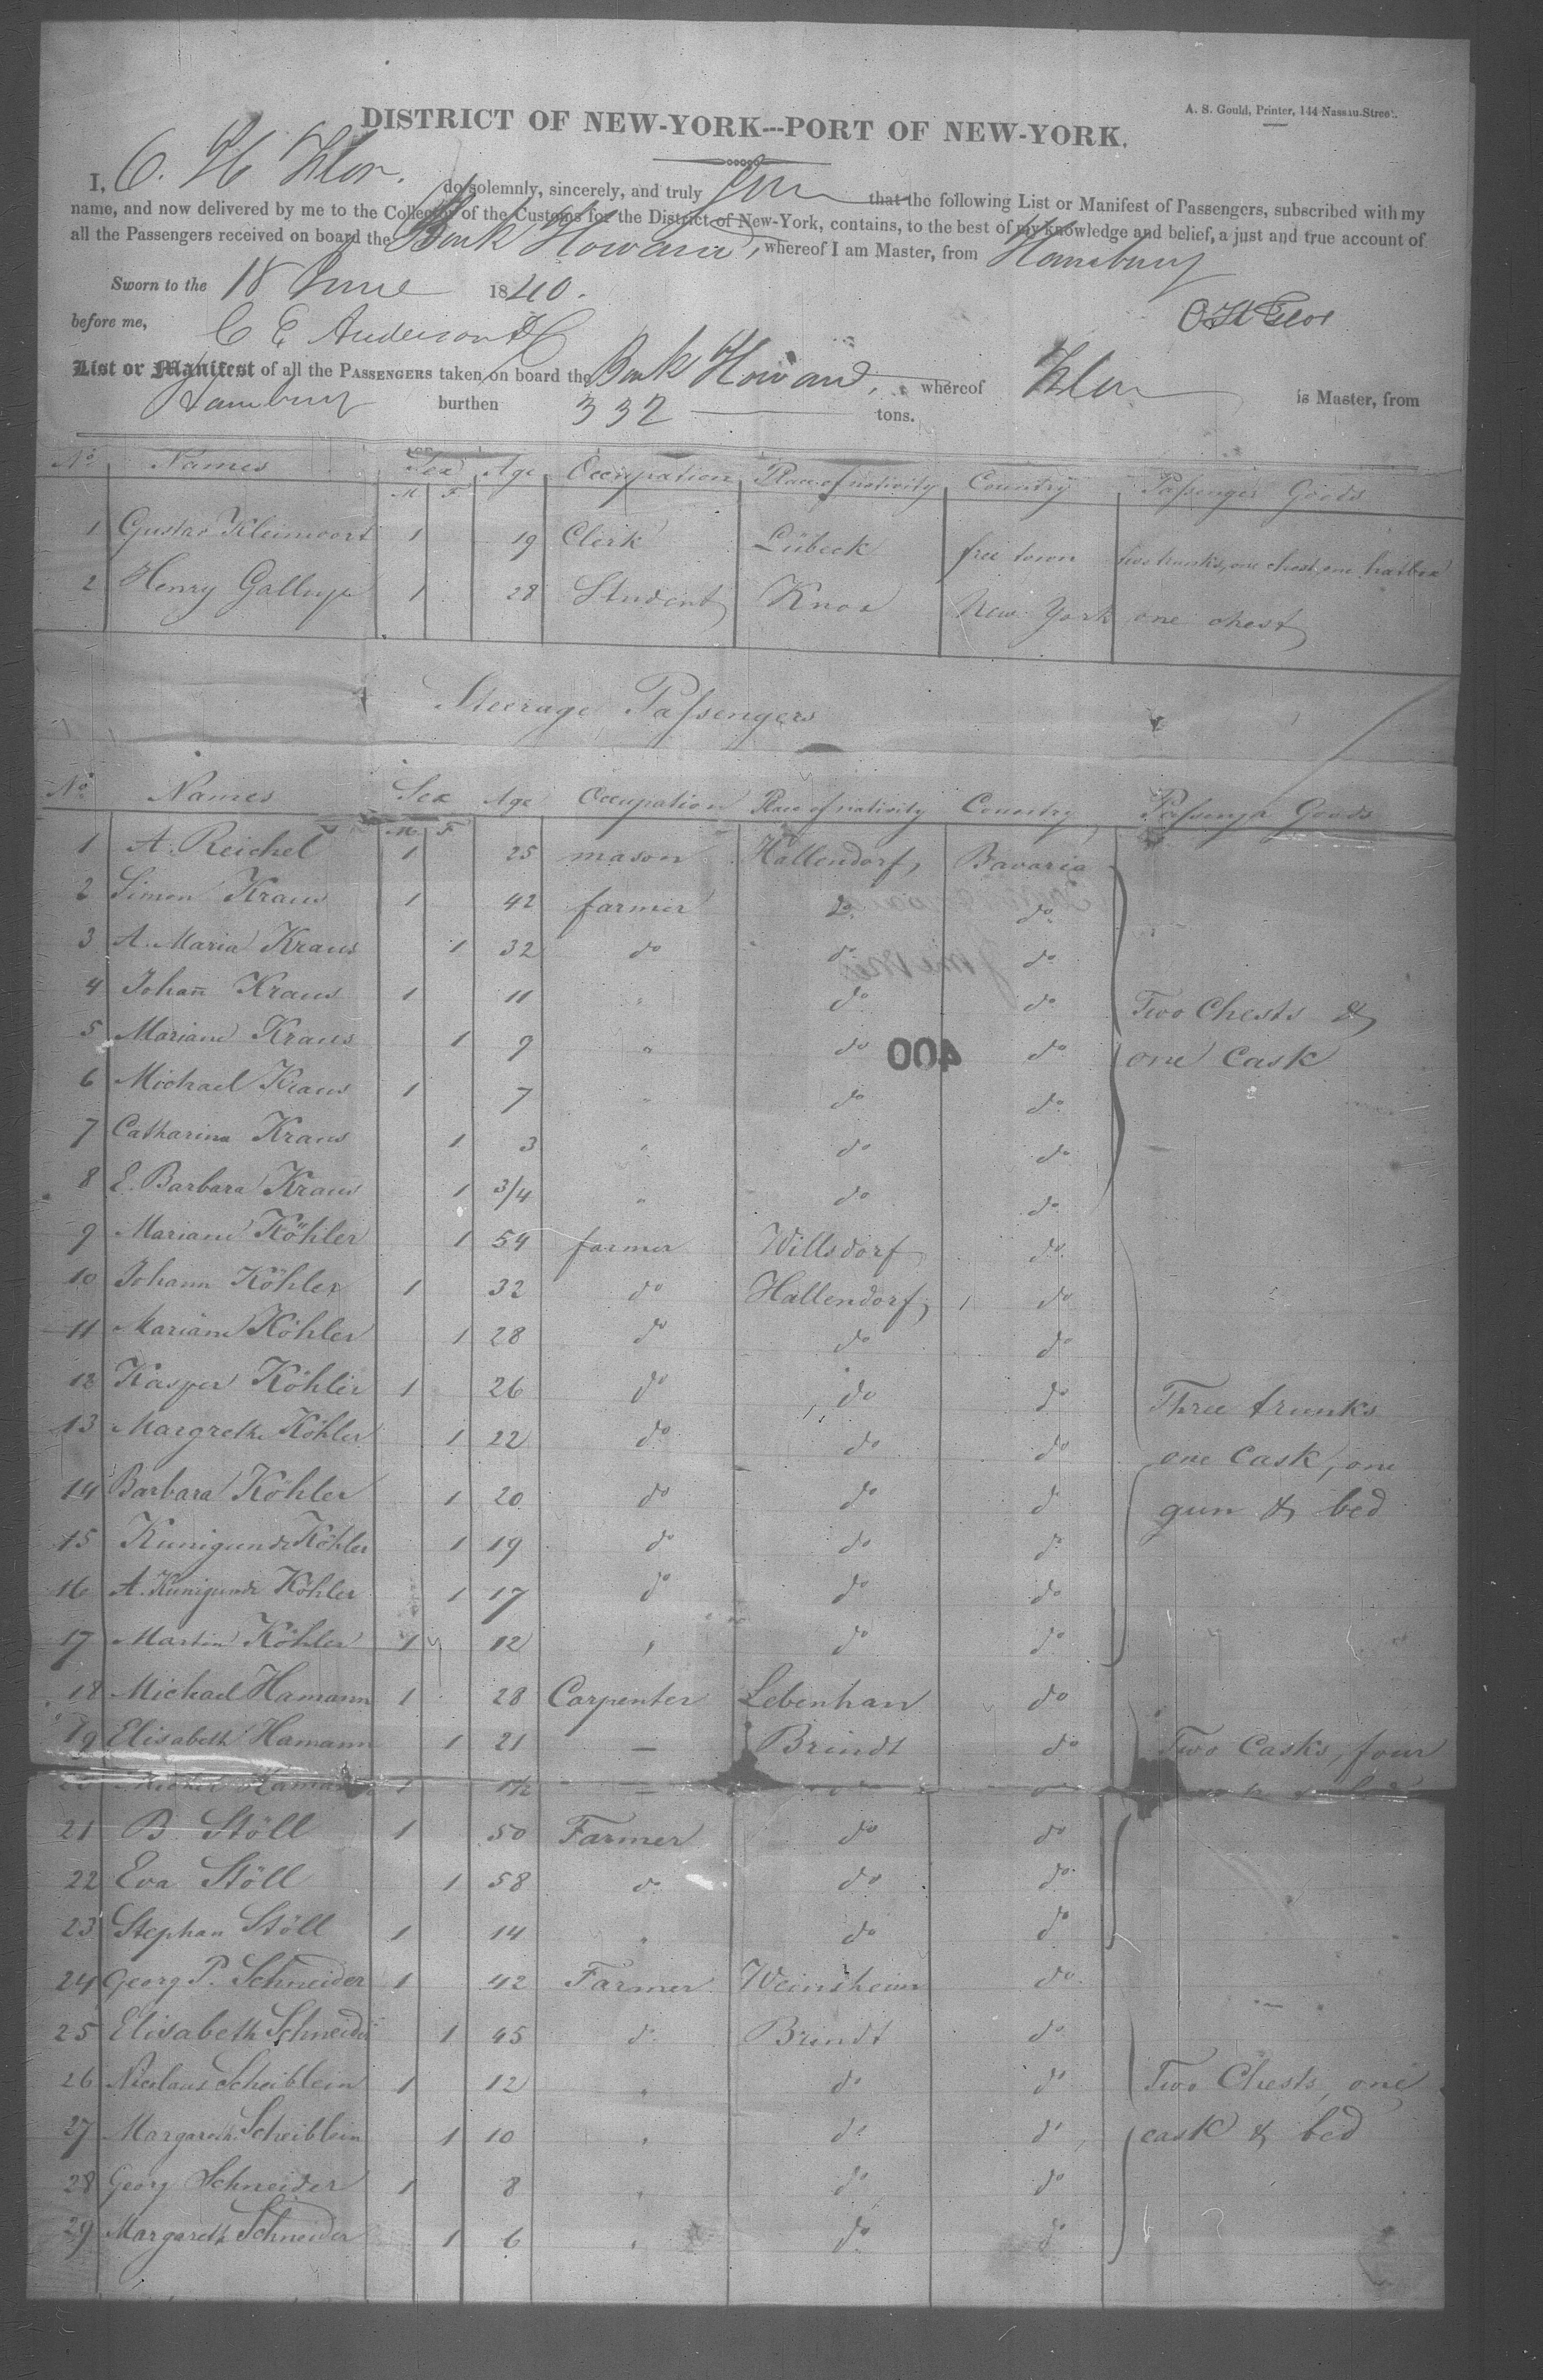 A. S. Gould, Printer, 144 Nassau-Street.
DISTRICT OF NEW-YORK---PORT OF NEW-YORK.
I, C. H. do solemnly, sincerely, and truly that the following List or Manifest of Passengers, subscribed with my
name, and now delivered by me to the Collector of the Customs for the District of New-York, contains, to the best of my knowledge and belief, a just and true account of
all the Passengers received on board the Bark Howard, whereof I am Master, from Hamburg
Sworn to the 18 June 1840.
before me, C E Anderson
List or Manifest of all the PASSENGERS taken on board the Bark Howard, whereof is Master, from
Hamburg burthen 332 tons.
No. Names Sex Age Occupation Place of nativity Country Passenger Goods
M F
1 Gustav 1 19 Clerk Lübeck free town two trunks, one chest, one hatbox
2 Henry Gallup 1 28 Student Knox New York one chest
Steerage Passengers
No. Names Sex Age Occupation Place of nativity Country Passenger Goods
M F
1 A. Reichel 1 25 mason Hallendorf, Bavaria
2 Simon Kraus 1 42 farmer do do
3 A. Maria Kraus 1 32 do do do
4 Johan̅ Kraus 1 11 " do do Two Chests &
5 Mariane Kraus 1 9 " do do one Cask
400
6 Michael Kraus 1 7 " do do
7 Catharina Kraus 1 3 " do do
8 E. Barbara Kraus 1 3/4 " do do
9 Mariane Köhler 1 54 farmer Willsdorf do
10 Johann Köhler 1 32 do Hallendorf, do
11 Mariane Köhler 1 28 do do do
12 Kasper Köhler 1 26 do do do Three trunks
13 Margreth Köhler 1 22 do do do one Cask, one
14 Barbara Köhler 1 20 do do do gun & bed
15 Kunigunde Köhler 1 19 do do do
16 A. Kunigunde Köhler 1 17 do do do
17 Martin Köhler 1 12 " do do
18 Michael Hamann 1 28 Carpenter Lebenhan do
19 Elisabeth Hamann 1 21 — Brindt do Two Casks, four
Hamann 1 — do do
21 B. Stöll 1 50 Farmer do do
22 Eva Stöll 1 58 do do do
23 Stephan Stöll 1 14 " do do
24 Georg P. Schneider 1 42 Farmer Weinsheim do
25 Elisabeth Schneider 1 45 do Brindt do
26 Nicolaus Scheiblein 1 12 " do do Two Chests, one
27 Margareth Scheiblein 1 10 " do do cask & bed
28 Georg Schneider 1 8 " do do
29 Margareth Schneider 1 6 " do do